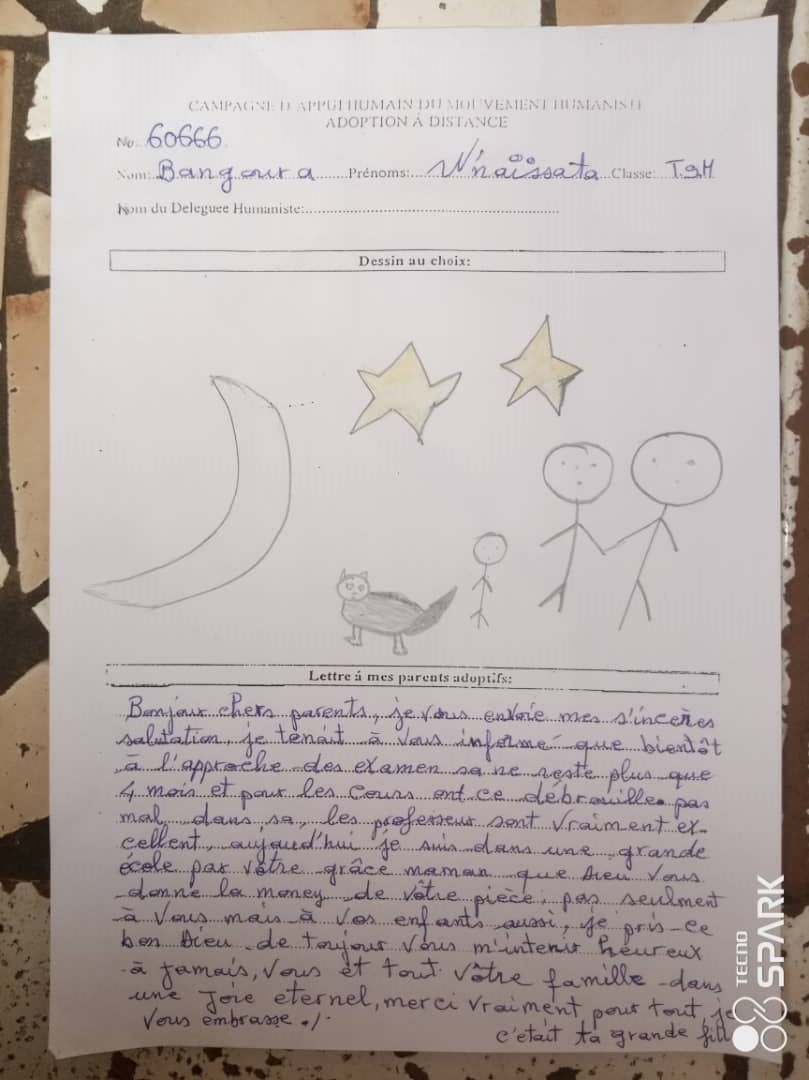 CAMPAGNE D'APPUI HUMAIN DU MOUVEMENT HUMANISTE
ADOPTION Á DISTANCE
No: 60666
Nom: Bangoura Prénoms: N'naïssata Classe: T.SM
Nom du Deleguee Humaniste:
Dessin au choix:
Lettre á mes parents adoptifs:
Bonjour chers parents, je vous envoie mes s'incères
salutation, je tenait à vous informé que bientôt
à l'approche des examen sa ne reste plus que
4 mois et pour les cours ont ce débrouille pas
mal, dans sa, les professeur sont vraiment ex-
cellent, aujourd'hui je suis dans une grande
école par vôtre grâce maman que Dieu vous
donne la money de vôtre pièce, pas seulment
à vous mais à vos enfants aussi, je pris ce
bon Dieu de toujour vous m'intenir heureux
à jamais, vous et tout vôtre famille dans
une joie eternel, merci vraiment pour tout, je
vous embrasse ./.
c'était ta grande fill
TECNO
SPARK